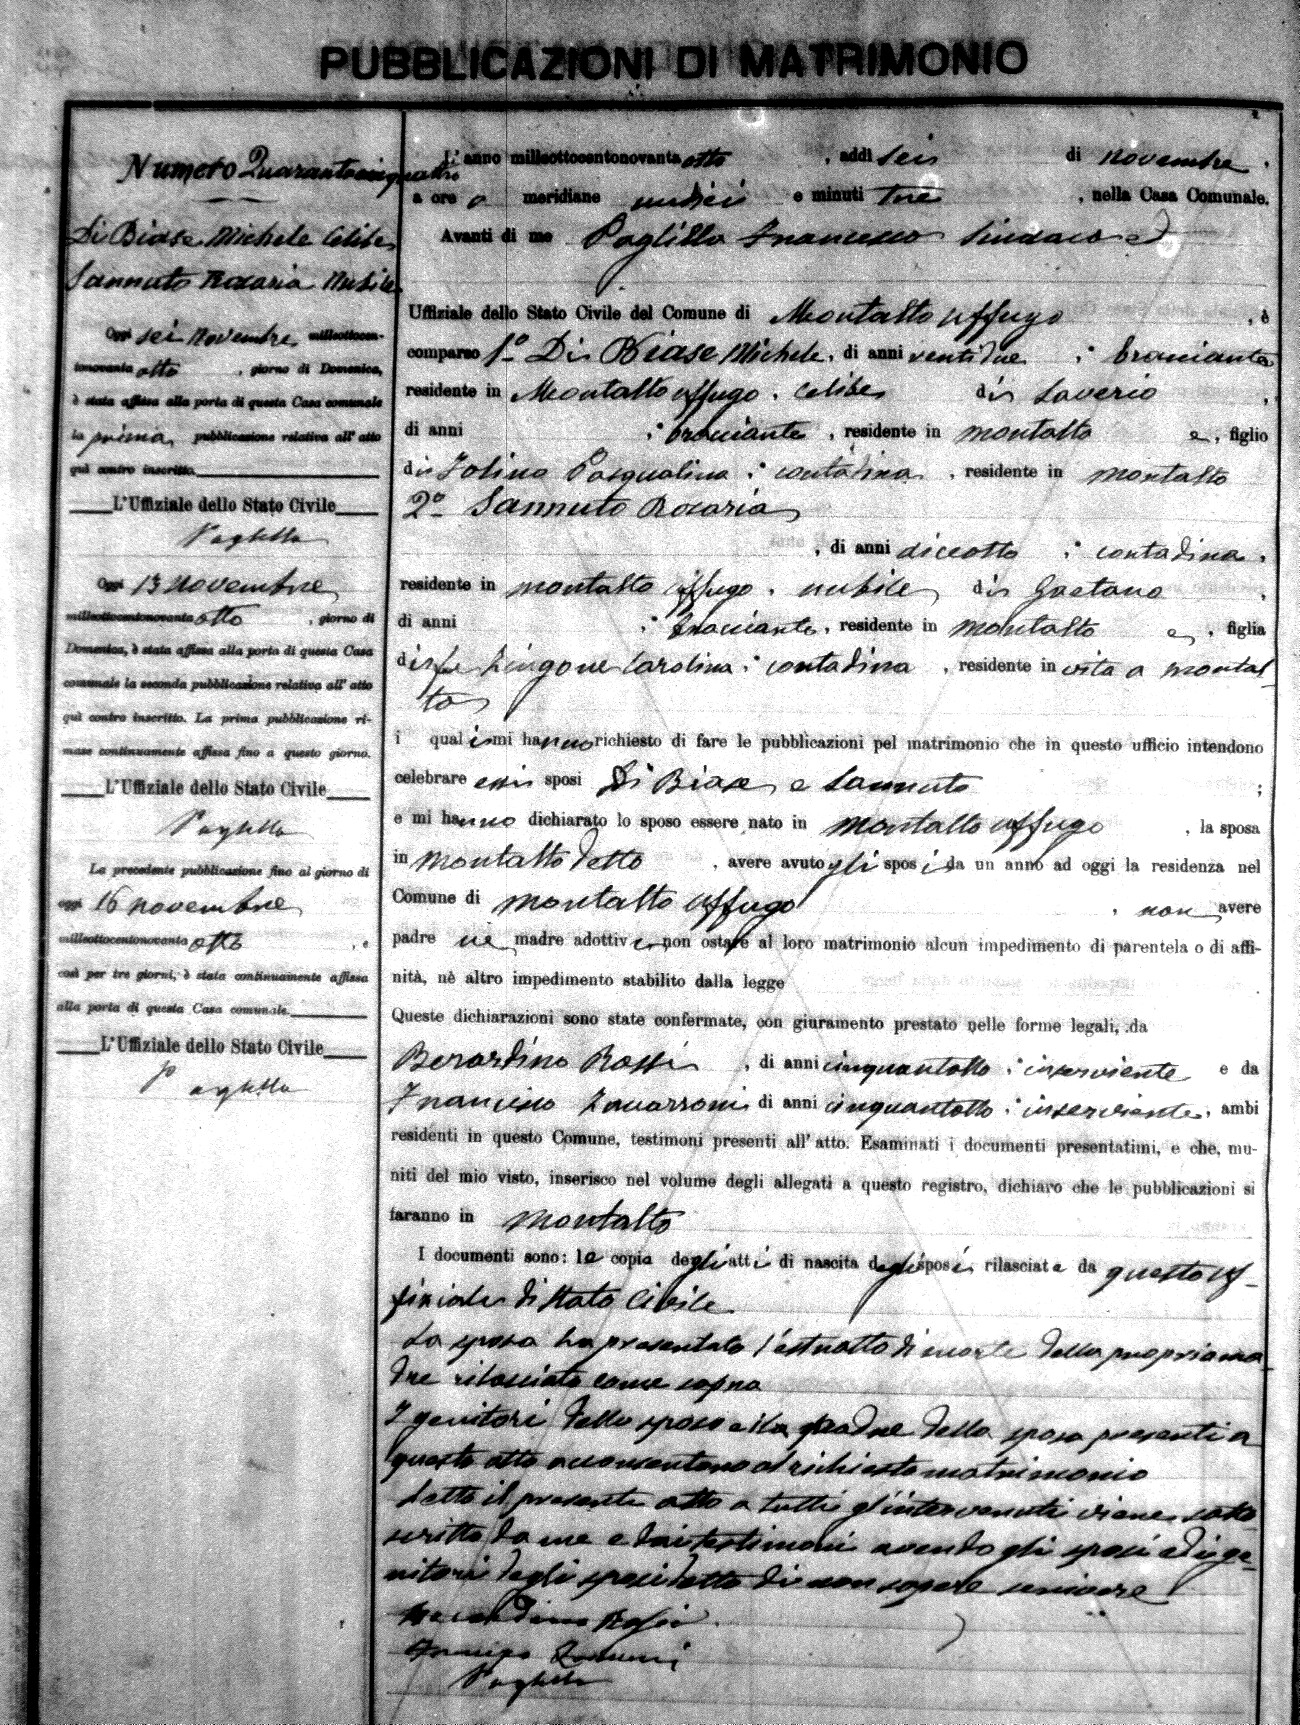 PUBBLICAZIONI DI MATRIMONIO
Numero Quarantaquattro
Di Biase Michele Celibe
Sannuto Rosaria Nubile
Oggi sei novembre milleottocen-
tonovanta otto, giorno di Domenica,
è stata affissa alla porta di questa Casa comunale
la prima pubblicazione relativa all' atto
quì contro inscritto.
L'Uffiziale dello Stato Civile
Oggi 13 novembre
milleottocentonovanta otto, giorno di
Domenica, è stata affissa alla porta di questa Casa
comunale la seconda pubblicazione relativa all' atto
quì contro inscritto. La prima pubblicazione ri-
mase continuamente affissa fino a questo giorno.
L'Uffiziale dello Stato Civile
La precedente pubblicazione fino al giorno di
oggi 16 novembre
milleottocentonovanta otto, e
così per tre giorni, è stata continuamente affissa
alla porta di questa Casa comunale.
L'Uffiziale dello Stato Civile
L'anno milleottocentonovanta otto, addì sei di novembre,
a ore a meridiane undici e minuti tre, nella Casa Comunale.
Avanti di me Francesco Sindaco ed
Uffiziale dello Stato Civile del Comune di Montalto Uffugo, è
comparso 1° Di Biase Michele, di anni ventidue, bracciante
residente in Montalto Uffugo, celibe di Saverio,
di anni , bracciante, residente in Montalto e, figlio
di Iolina Pasqualina, contadina, residente in Montalto
2° Sannuto Rosaria
, di anni diciotto, contadina,
residente in Montalto Uffugo, nubile di Gaetano,
di anni , bracciante, residente in Montalto e, figlia
di fu Zingone Carolina, contadina, residente in vita a Montal-
to
i quali mi hanno richiesto di fare le pubblicazioni pel matrimonio che in questo ufficio intendono
celebrare essi sposi Di Biase e Sannuto ;
e mi hanno dichiarato lo sposo essere nato in Montalto Uffugo, la sposa
in Montalto detto, avere avuto gli sposi da un anno ad oggi la residenza nel
Comune di Montalto Uffugo, non avere
padre nè madre adottivi e non ostare al loro matrimonio alcun impedimento di parentela o di affi-
nità, nè altro impedimento stabilito dalla legge
Queste dichiarazioni sono state confermate, con giuramento prestato nelle forme legali, da
Berardino Rossi, di anni cinquantotto, inserviente e da
Francesco Zavarroni di anni cinquantotto, inserviente, ambi
residenti in questo Comune, testimoni presenti all' atto. Esaminati i documenti presentatimi, e che, mu-
niti del mio visto, inserisco nel volume degli allegati a questo registro, dichiaro che le pubblicazioni si
faranno in Montalto
I documenti sono: le copie degli atti di nascita degli sposi, rilasciate da questo Uf-
fiziale di Stato Civile
La sposa ha presentato l'estratto di morte della propria ma-
dre rilasciato come sopra
I genitori dello sposo e il padre della sposa presenti a
questo atto acconsentono al richiesto matrimonio
Letto il presente atto a tutti gl'intervenuti viene sotto-
scritto da me e dai testimoni avendo gli sposi ed i ge-
nitori degli sposi detto di non sapere scrivere
Berardino Rossi